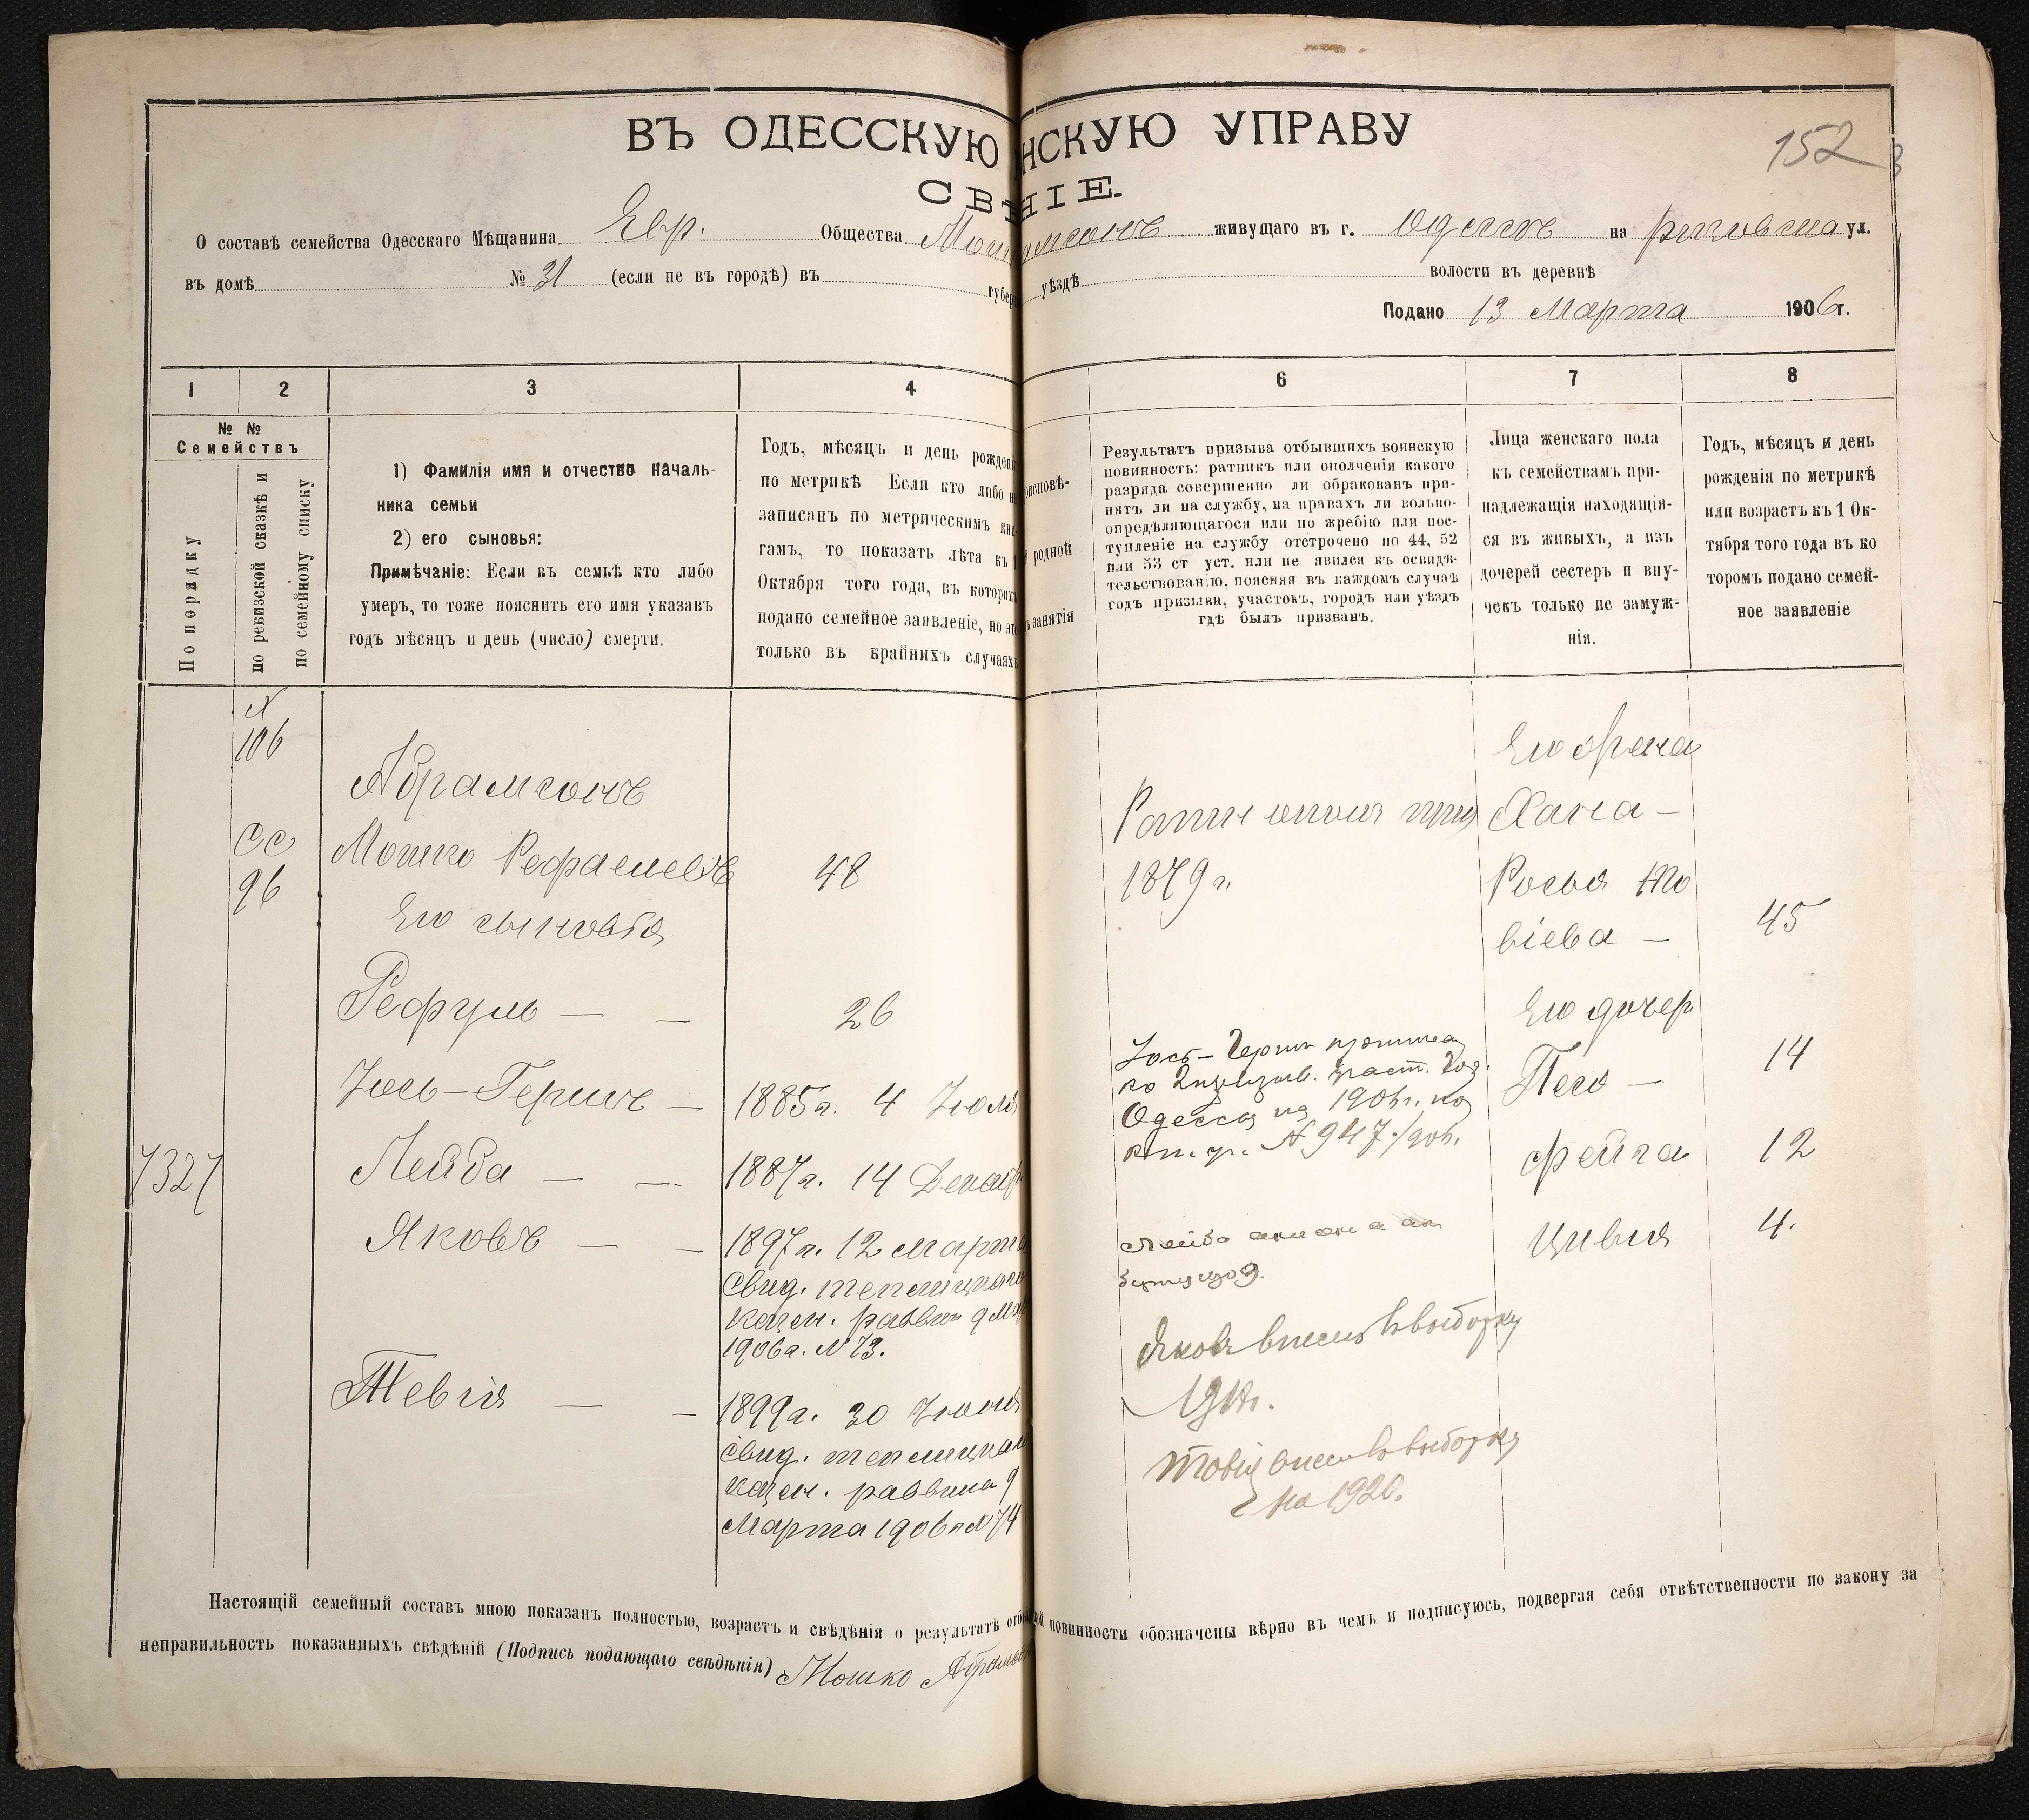 ВЪ ОДЕССКУЮ НСКУЮ УПРАВУ
152
СВѢНІЕ.
О составѣ семейства Одесскаго Мѣщанина Евр. Общества живущаго въ г. Одессѣ на ул.
въ домѣ № 31 (если не въ городѣ) въ губер уѣздѣ волости въ деревнѣ
Подано 13 Марта 1906 г.
1 2 3 4 6 7 8
№ №
Семействъ
По порядку
по ревизской сказкѣ и
по семейному списку
1) Фамилія имя и отчество началь-
ника семьи
2) его сыновья:
Примѣчаніе: Если въ семьѣ кто либо
умеръ, то тоже пояснить его имя указавъ
годъ мѣсяцъ и день (число) смерти.
Годъ, мѣсяцъ и день рожденія
по метрикѣ Если кто либо не
записанъ по метрическимъ кни-
гамъ, то показать лѣта къ 1
Октября того года, въ которомъ
подано семейное заявленіе, но это
только въ крайнихъ случаяхъ
оисповѣ-
родной
занятія
Результатъ призыва отбывшихъ воинскую
повинность: ратникъ или ополченія какого
разряда совершенно ли обракованъ при-
нятъ ли на службу, на правахъ ли вольно-
опредѣляющагося или по жребію или пос-
тупленіе на службу отстрочено по 44, 52
или 53 ст уст. или не явился къ освидѣ-
тельствованію, поясняя въ каждомъ случаѣ
годъ призыва, участокъ, городъ или уѣздъ
гдѣ былъ призванъ.
Лица женскаго пола
къ семействамъ при-
надлежащія находящія-
ся въ живыхъ, а изъ
дочерей сестеръ и вну-
чекъ только не замуж-
нія.
Годъ, мѣсяцъ и день
рожденія по метрикѣ
или возрастъ къ 1 Ок-
тября того года въ ко
торомъ подано семей-
ное заявленіе
106
Абрамсонъ
Его жена
сс
96
Мошко Рефаелевъ 48
1879 г.
Хана —
Рося То
віева — 45
Его сыновья
Рефуль — — 26
Его дочер
Іось-Гершъ — 1885 г. 4 Іюля
Іось-Гершъ
Одесса на 1906 г.
№ 947/906.
Песя — 14
7327
Лейба — — 1887 г. 14 Декабр
Фейга 12
Яковъ — — 1897 г. 12 Марта
Свид.
казен. раввин 9 Мар
1906 г. № 73.
Лейба
Цивія 4.
Яковъ внесенъ въ выборку
Тевія — — 1899 г. 30 Іюня
Свид.
казен. раввина 9
Марта 1906 г. № 74
Товія внесен въ выборку
на 1920.
Настоящій семейный составъ мною показанъ полностью, возрастъ и свѣдѣнія о результатѣ отбы повинности обозначены вѣрно въ чемъ и подписуюсь, подвергая себя отвѣтственности по закону за
неправильность показанныхъ свѣдѣній (Подпись подающаго свѣдѣнія) Мошко Абрамсон